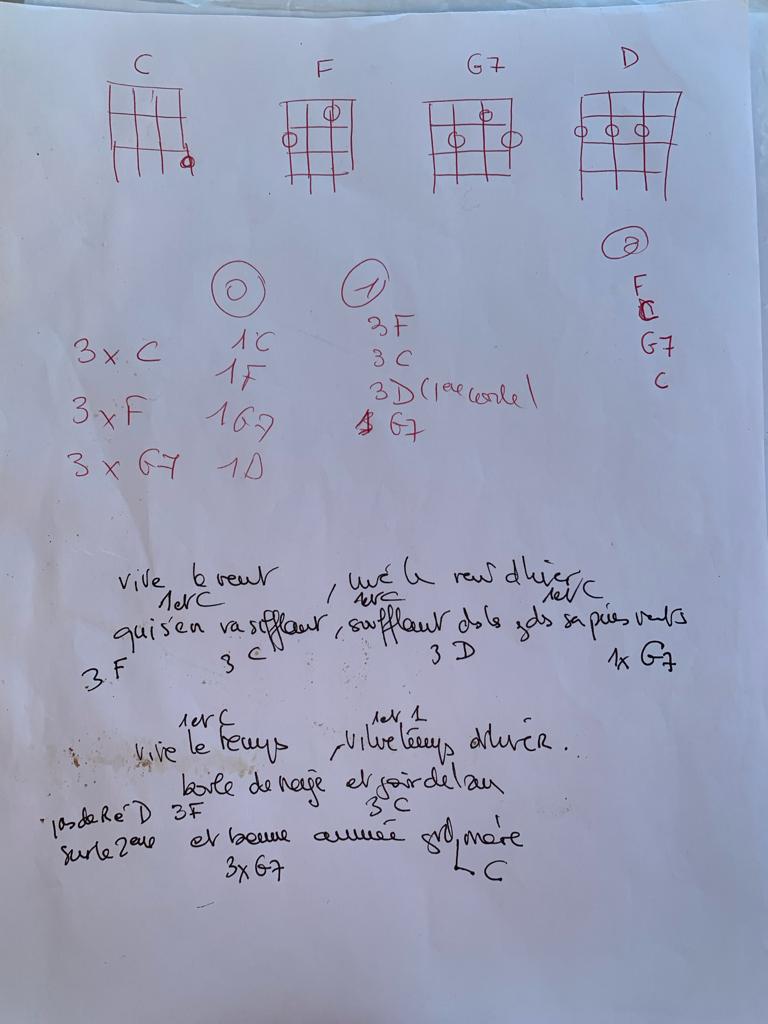 C F G7 D
0 1 2
3 x C 1C 3F F
1F 3C C
3 x F 1G7 3D (1ere corde) G7
3 x G7 1D G7 C
vive le vent, vive le vent d'hiver
1er C 1er C 1er C
qui s'en va sifflant, soufflant ds ls gds sapins verts
3 F 3 C 3 D 1x G7
1er C 1er 1
vive le temps, vive le temps d'hiver.
boule de neige et jour de l'an
pas de Ré D 3F 3C
sur le 2eme et bonne année grd, mère
3x G7 C